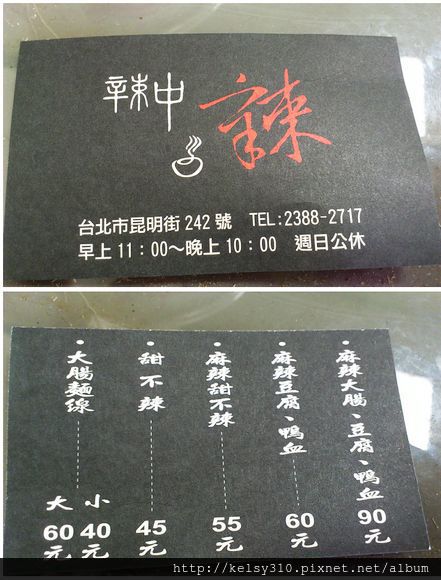 辣中辣
台北市昆明街242號 TEL:2388-2717
早上11:00~晚上10:00 週日公休
•麻辣大腸、豆腐、鴨血 90元
•麻辣豆腐、鴨血 60元
•麻辣甜不辣 55元
•甜不辣 45元
•大腸麵線 小40元 大60元
http://kelsy310.pixnet.net/album